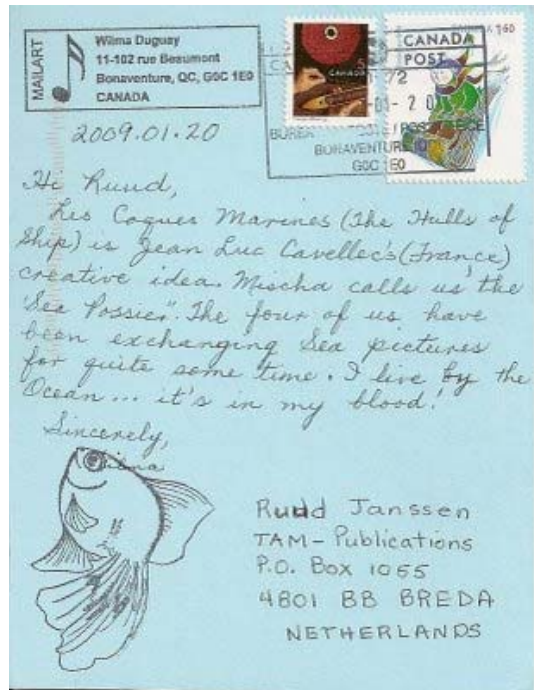 MAILART
Wilma Duguay
11-102 rue Beaumont
Bonaventure, QC, G0C 1E0
CANADA
CANADA
POST
CANADA
1.60
BONAVENTURE
G0C 1E0
2009.01.20
Hi Ruud,
Les Coques Marines (The Hulls of
Ship) is Jean Luc Cavellec's (France)
creative idea. Mischa calls us "the
Sea Possier". The four of us have
been exchanging Sea pictures
for quite some time. I live by the
Ocean... it's in my blood!
Sincerely,
Wilma
Ruud Janssen
TAM-Publications
P.O. Box 1055
4801 BB BREDA
NETHERLANDS